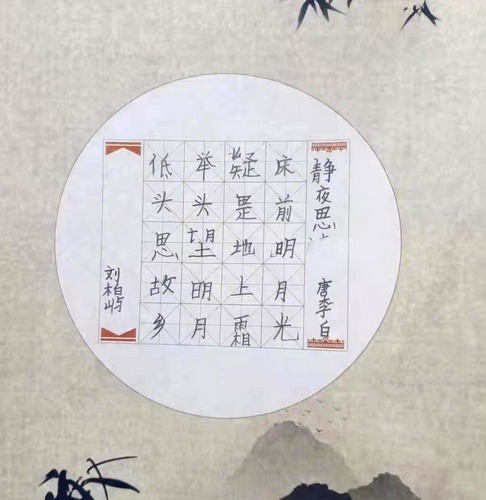 静夜思
唐李白
床前明月光
疑是地上霜
举头望明月
低头思故乡
刘柏屿